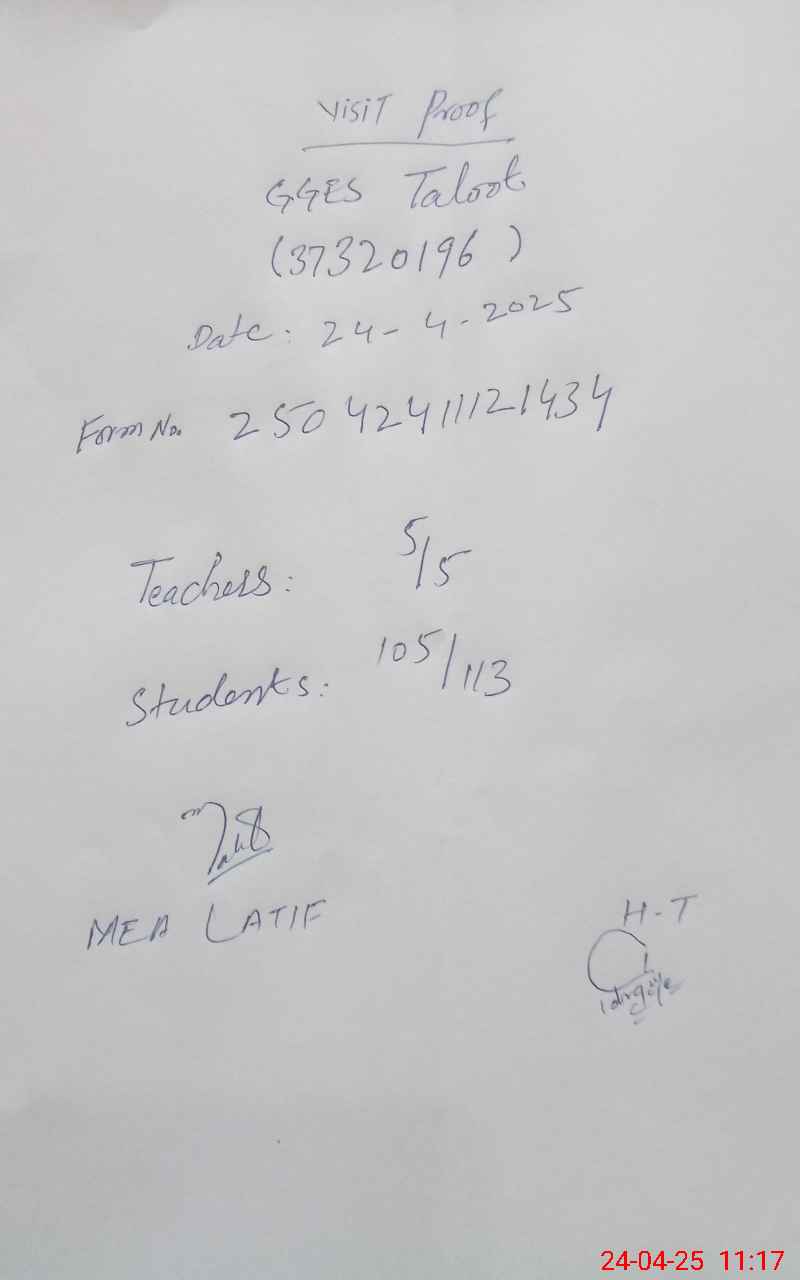 Visit Proof
GGES Taloot
(37320196)
Date: 24-4-2025
Form No. 25042411121434
Teachers: 5/5
Students: 105/113
MEA LATIF
H-T
24-04-25 11:17